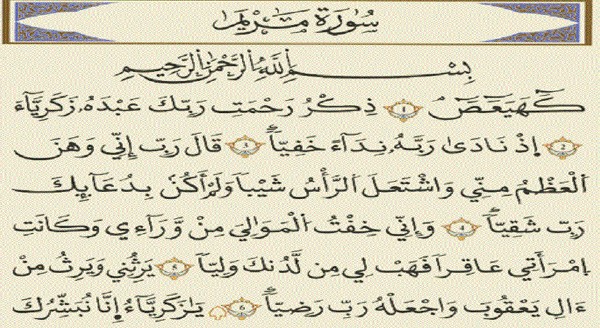 سُورَةُ مَرْيَمَ
بِسْمِ اللَّهِ الرَّحْمَٰنِ الرَّحِيمِ
كٓهيعٓصٓ ۝١ ذِكْرُ رَحْمَتِ رَبِّكَ عَبْدَهُۥ زَكَرِيَّآءَ
۝٢ إِذْ نَادَىٰ رَبَّهُۥ نِدَآءً خَفِيًّا ۝٣ قَالَ رَبِّ إِنِّي وَهَنَ
ٱلْعَظْمُ مِنِّي وَٱشْتَعَلَ ٱلرَّأْسُ شَيْبًا وَلَمْ أَكُنۢ بِدُعَآئِكَ
رَبِّ شَقِيًّا ۝٤ وَإِنِّي خِفْتُ ٱلْمَوَٰلِيَ مِن وَرَآءِي وَكَانَتِ
ٱمْرَأَتِي عَاقِرًا فَهَبْ لِي مِن لَّدُنكَ وَلِيًّا ۝٥ يَرِثُنِي وَيَرِثُ مِنْ
ءَالِ يَعْقُوبَ وَٱجْعَلْهُ رَبِّ رَضِيًّا ۝٦ يَٰزَكَرِيَّآءُ إِنَّا نُبَشِّرُكَ